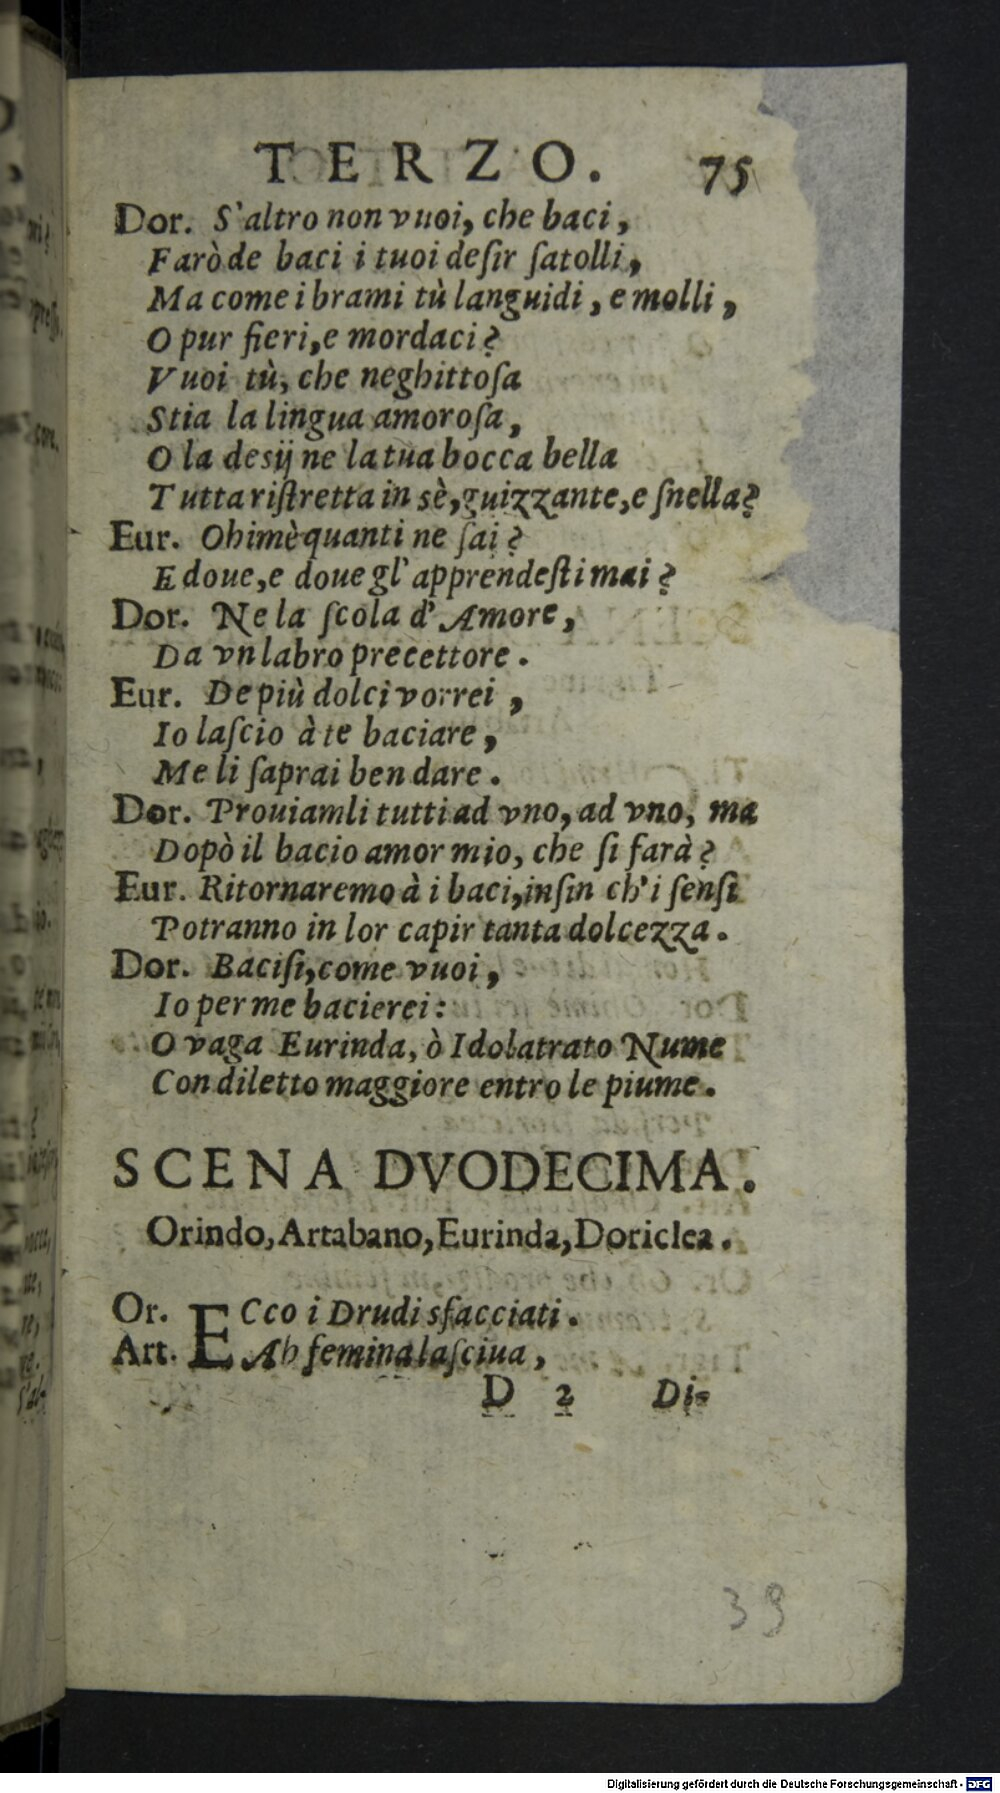 TERZO. 75
Dor. S'altro non vuoi, che baci,
Farò de baci i tuoi desir ſatolli,
Ma come i brami tù languidi, e molli,
O pur fieri, e mordaci?
Vuoi tù, che neghittoſa
Stia la lingua amoroſa,
O la desij ne la tua bocca bella
Tutta riſtretta in sè, guizzante, e ſnella?
Eur. Ohimè quanti ne ſai?
E doue, e doue gl'apprendeſti mai?
Dor. Ne la ſcola d'Amore,
Da vn labro precettore.
Eur. De più dolci vorrei,
Io laſcio à te baciare,
Me li ſaprai ben dare.
Dor. Prouiamli tutti ad vno, ad vno, ma
Dopò il bacio amor mio, che ſi farà?
Eur. Ritornaremo à i baci, inſin ch'i ſenſi
Potranno in lor capir tanta dolcezza.
Dor. Baciſi, come vuoi,
Io per me bacierei:
O vaga Eurinda, ò Idolatrato Nume
Con diletto maggiore entro le piume.
SCENA DVODECIMA.
Orindo, Artabano, Eurinda, Doriclea.
Or. ECco i Drudi sfacciati.
Art. Ah femina laſciua,
D 2 Di-
39
Digitalisierung gefördert durch die Deutsche Forschungsgemeinschaft - DFG